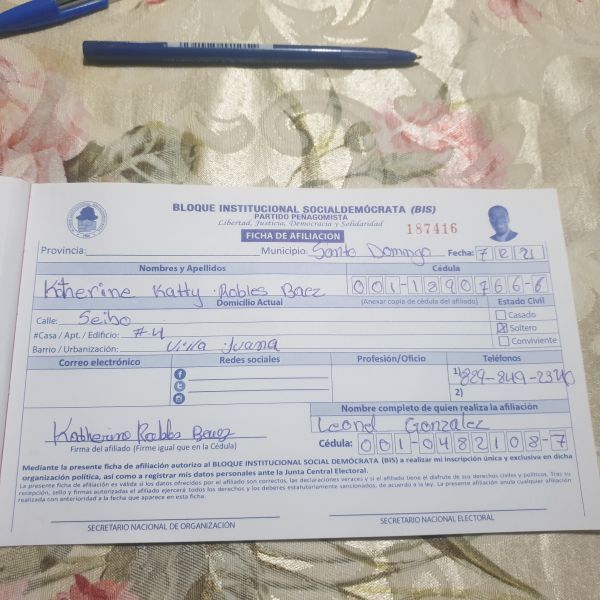 BLOQUE INSTITUCIONAL SOCIALDEMÓCRATA (BIS)
PARTIDO PEÑAGOMISTA
Libertad, Justicia, Democracia y Solidaridad
187416
FICHA DE AFILIACIÓN
Provincia: Municipio: Santo Domingo Fecha: 7 12 21
Nombres y Apellidos Cédula
Katherine Katty Robles Baez 001-1890766-6
Domicilio Actual (Anexar copia de cédula del afiliado) Estado Civil
Calle: Seibo Casado
#Casa / Apt. / Edificio: #4 Soltero
Barrio / Urbanización: Villa Juana Conviviente
Correo electrónico Redes sociales Profesión/Oficio Teléfonos
1) 829-849-2340
2)
Nombre completo de quien realiza la afiliación
Leonel Gonzalez
Katherine Robles Baez
Firma del afiliado (Firme igual que en la Cédula) Cédula: 001-0482108-7
Mediante la presente ficha de afiliación autorizo al BLOQUE INSTITUCIONAL SOCIAL DEMÓCRATA (BIS) a realizar mi inscripción única y exclusiva en dicha
organización política, así como a registrar mis datos personales ante la Junta Central Electoral.
La presente ficha de afiliación es válida si los datos ofrecidos por el afiliado son correctos, las declaraciones veraces y si el afiliado tiene el disfrute de sus derechos civiles y políticos. Tras su
recepción, sello y firmas autorizadas el afiliado ejercerá todos los derechos y los deberes estatutariamente sancionados, de acuerdo a la ley. La presente afiliación anula cualquier afiliación
realizada con anterioridad a la fecha que aparece en esta ficha.
SECRETARIO NACIONAL DE ORGANIZACIÓN SECRETARIO NACIONAL ELECTORAL